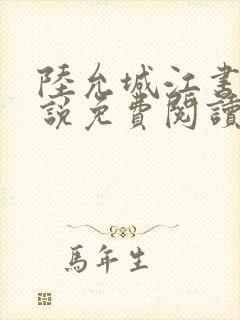 陸允城江書
說免費閱讀
馬年生